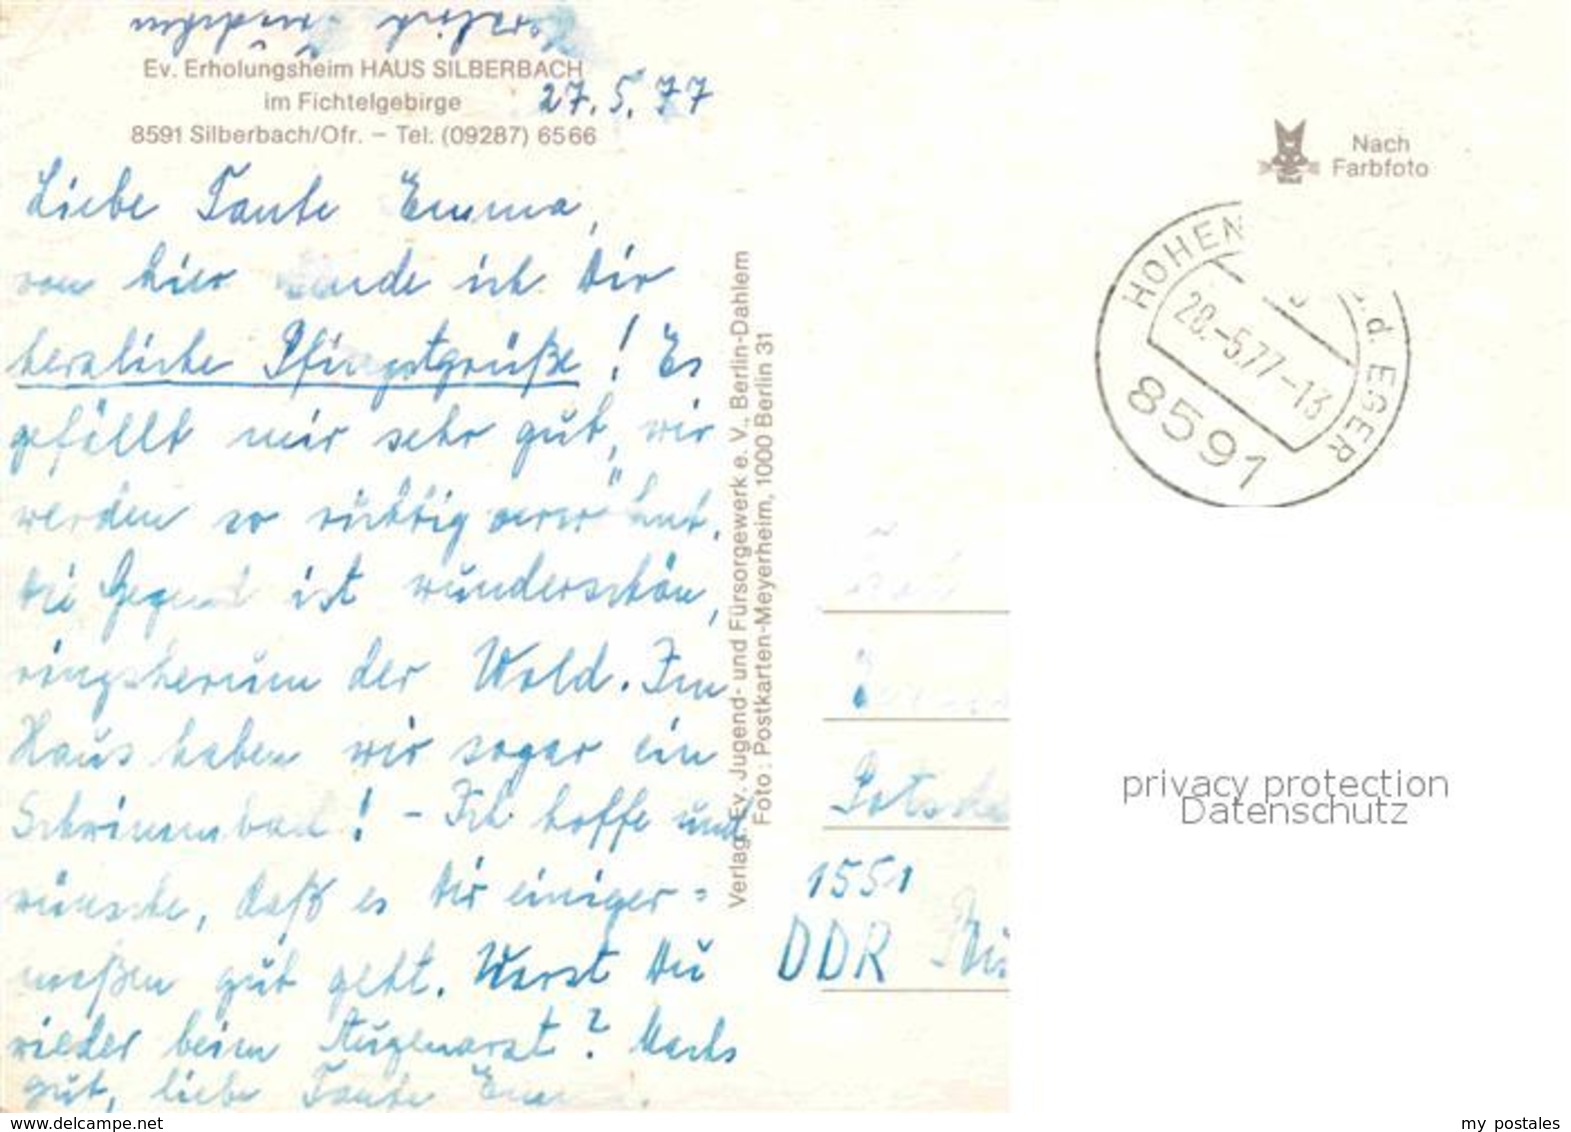 Herzlich
Ev. Erholungsheim HAUS SILBERBACH
im Fichtelgebirge
8591 Silberbach/Ofr. – Tel. (09287) 6566
27.5.77
Liebe Tante Emma,
von hier sende ich Dir
herzliche Pfingstgrüße! Es
gefällt mir sehr gut, wir
werden so richtig verwöhnt.
Die Gegend ist wunderschön,
ringsherum der Wald. Im
Haus haben wir sogar ein
Schwimmbad! – Ich hoffe und
wünsche, daß es Dir einiger=
maßen gut geht. Warst Du
wieder beim Augenarzt? Machs
gut, liebe Tante Emma.
Verlag: Ev. Jugend- und Fürsorgewerk e. V., Berlin-Dahlem
Foto: Postkarten-Meyerheim, 1000 Berlin 31
Nach
Farbfoto
HOHEN a.d. EGER
28.-5.77-13
8591
1551
DDR
privacy protection
Datenschutz
www.delcampe.net
my_postales